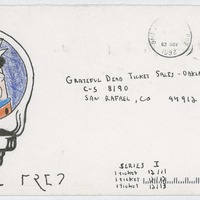 GRATEFUL DEAD TICKET SALES - OAKLA
C-S 8190
SAN RAFAEL, CA 94912
SERIES I
1 TICKET 12/11
1 TICKET 12/12
1 TICKET 12/13